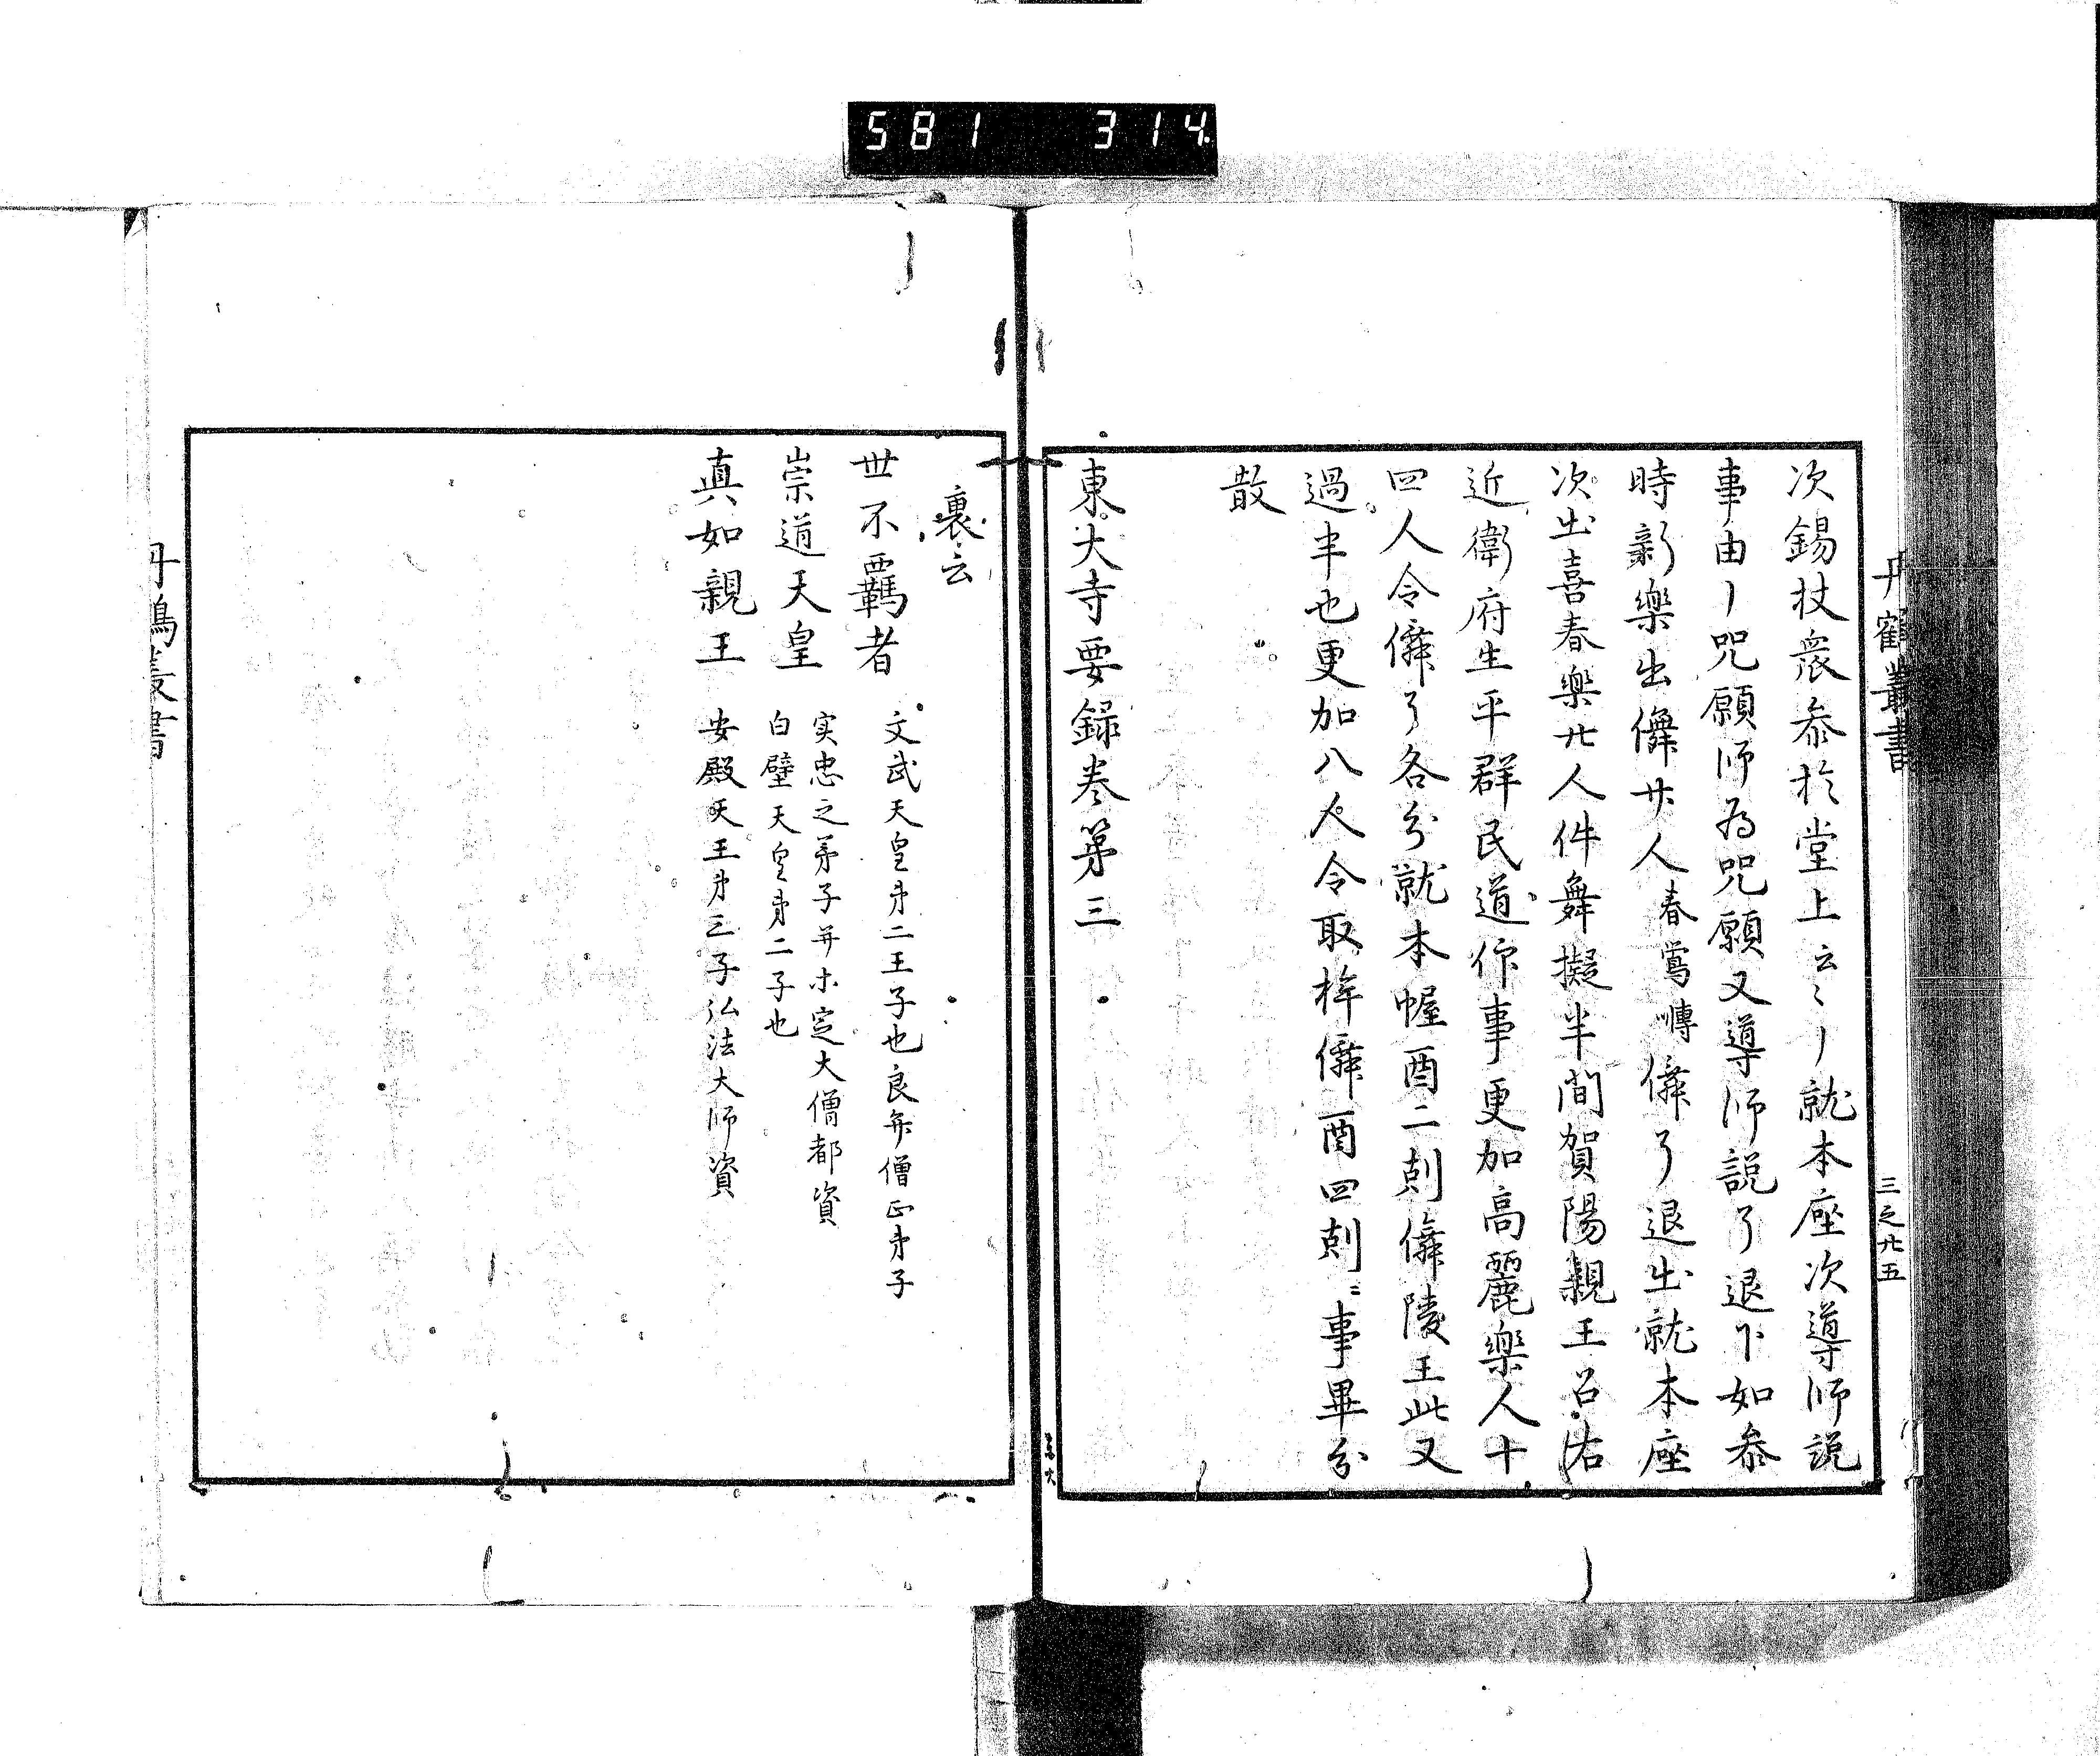 581 314
丹鶴叢書
三之廿五
次錫杖衆叅於堂上云〻丿就本座次導師説
事由丿咒願师為咒願又導师説了退下如叅
時新樂出儛廿人春鶯囀儛了退出就本座
次出喜春樂廿人件舞擬半間賀陽親王召右
近衛府生平群民道作事更加高麗樂人十
四人令儛了各分就本幄酉二剋儛陵王此又
過半也更加八人令取桙儛酉四剋〻事畢分
散
東大寺要録巻第三
裏云
世不羈者 文武天皇弟二王子也良弁僧正弟子
崇道天皇 实忠之弟子并木定大僧都資
白壁天皇弟二子也
真如親王 安殿天王弟三子弘法大师資
丹鶴叢書